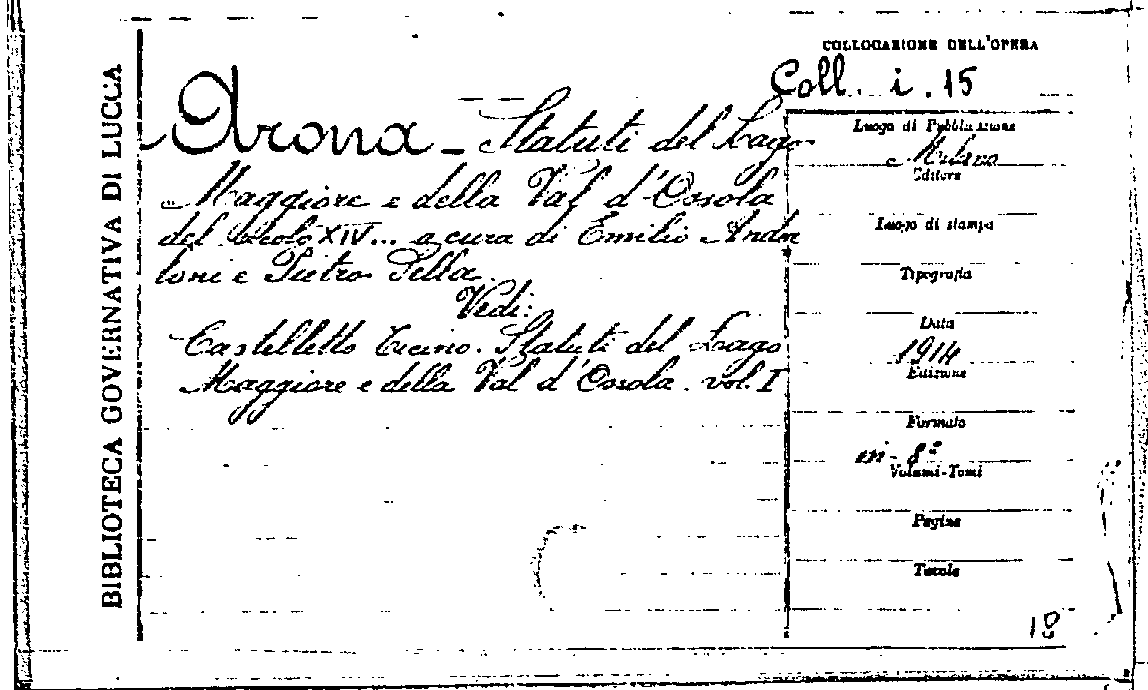 BIBLIOTECA GOVERNATIVA DI LUCCA
COLLOCAZIONE DELL'OPERA
Coll. i. 15
Arona - Statuti del Lago
Maggiore e della Val d'Ossola
del secolo XIV... a cura di Emilio Andre
toni e Pietro Pella.
Vedi:
Castelletto Ticino. Statuti del Lago
Maggiore e della Val d'Ossola. vol. I
Luogo di Pubblicazione
Milano
Editore
Luogo di stampa
Tipografia
Data
1914
Edizione
Formato
in-8°
Volumi-Tomi
Pagine
Tavole
18